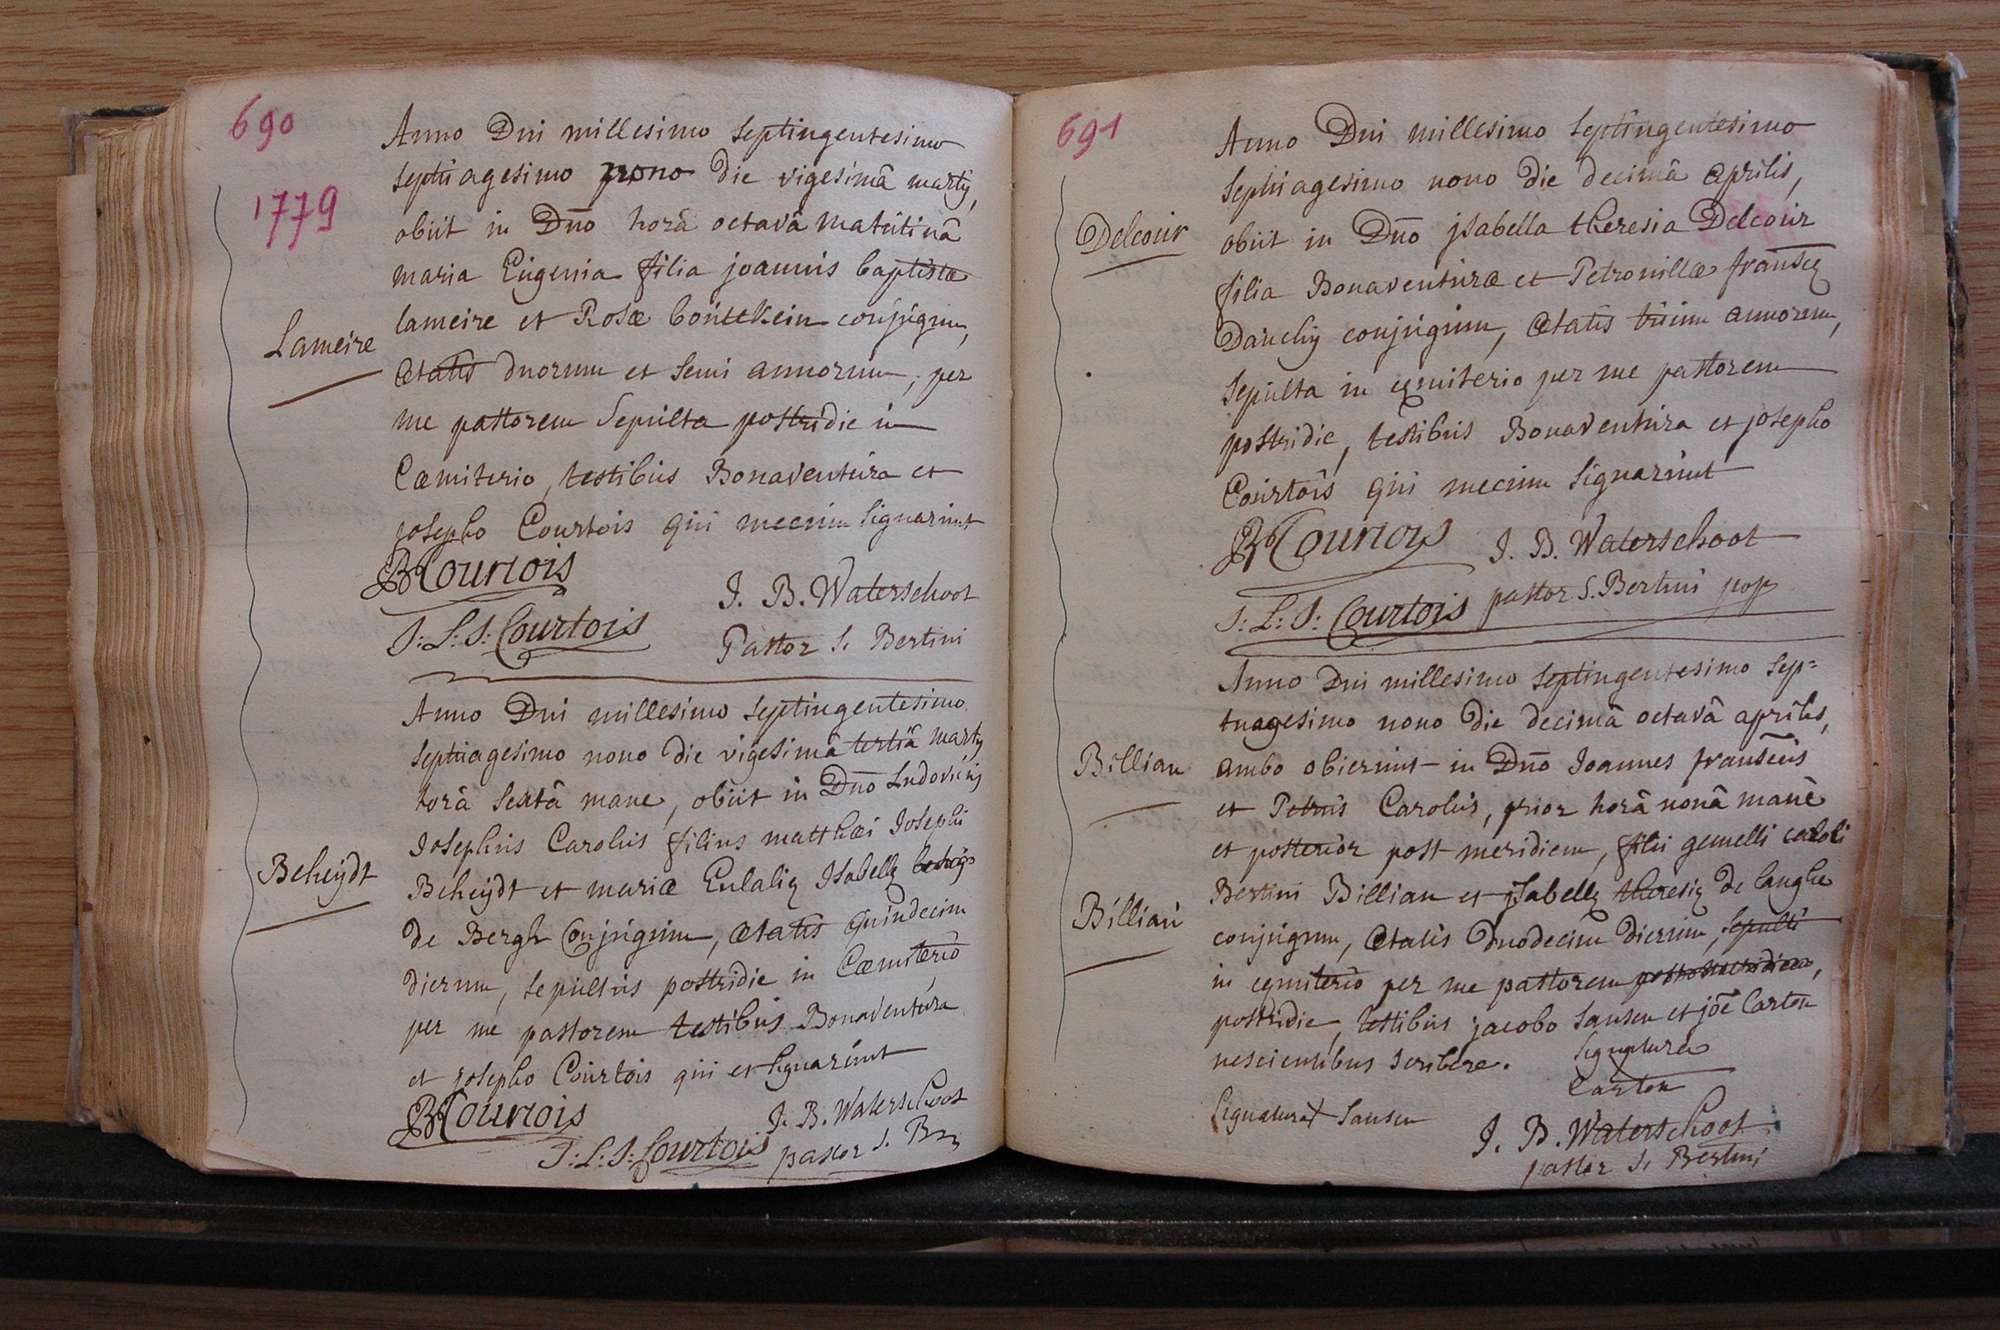 690
1779
Anno Dni millesimo septingentesimo
septuagesimo nono die vigesimâ martij,
obiit in Dno horâ octavâ matutinâ
maria Eugenia filia joannis baptistæ
Lameire
lameire et Rosæ bouttekein conjugum,
ætatis duorum et semi annorum, per
me pastorem sepulta postridie in
Cœmiterio, testibus Bonaventura et
josepho Courtois qui mecum signarunt
B Courtois
J. B. Waterschoot
J: L: J: Courtois
Pastor S. Bertini
Anno Dni millesimo septingentesimo
septuagesimo nono die vigesimâ tertiâ martij
horâ sextâ mane, obiit in Dno Ludovicus
Josephus Carolus filius matthæi Josephi
Beheÿdt
Beheÿdt et mariæ Eulaliæ Isabellæ
de Bergh Conjugum, ætatis quindecim
dierum, sepultus postridie in Cœmiterio
per me pastorem testibus Bonaventura
et josepho Courtois qui et signarunt
B Courtois
J. B. Waterschoot
J: L: J: Courtois
pastor S. B
691
Anno Dni millesimo septingentesimo
septuagesimo nono die decimâ aprilis,
Delcour
obiit in Dno jsabella theresia Delcour
filia Bonaventuræ et Petronillæ
Dauchy conjugum, ætatis trium annorum,
sepulta in cœmiterio per me pastorem
postridie, testibus Bonaventura et josepho
Courtois qui mecum signarunt
B Courtois
J. B. Waterschoot
pastor S. Bertini pop
J: L: J: Courtois
Anno Dni millesimo septingentesimo sep=
tuagesimo nono die decimâ octavâ aprilis,
Billiau
ambo obierunt in Dno Joannes franscus
et Petrus Carolus, prior horâ nonâ manè
et posterior post meridiem, filii gemelli caroli
Bertini Billiau et jsabellæ theresiæ de langhe
Billiau
conjugum, ætatis duodecim dierum, sepulti
in cœmiterio per me pastorem
postridie, testibus jacobo sansen et jõe Carton
nescientibus scribere.
signatura
Carton
Signatura sansen
J. B. Waterschoot
pastor S. Bertini